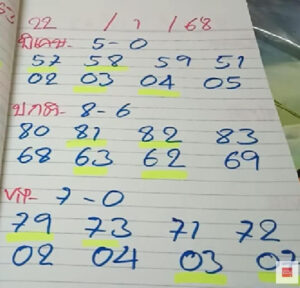 22 / 1 / 68
พิเศษ 5-0
57 58 59 51
02 03 04 05
ปกติ 8-6
80 81 82 83
68 63 62 69
VIP 7-0
79 73 71 72
02 04 03